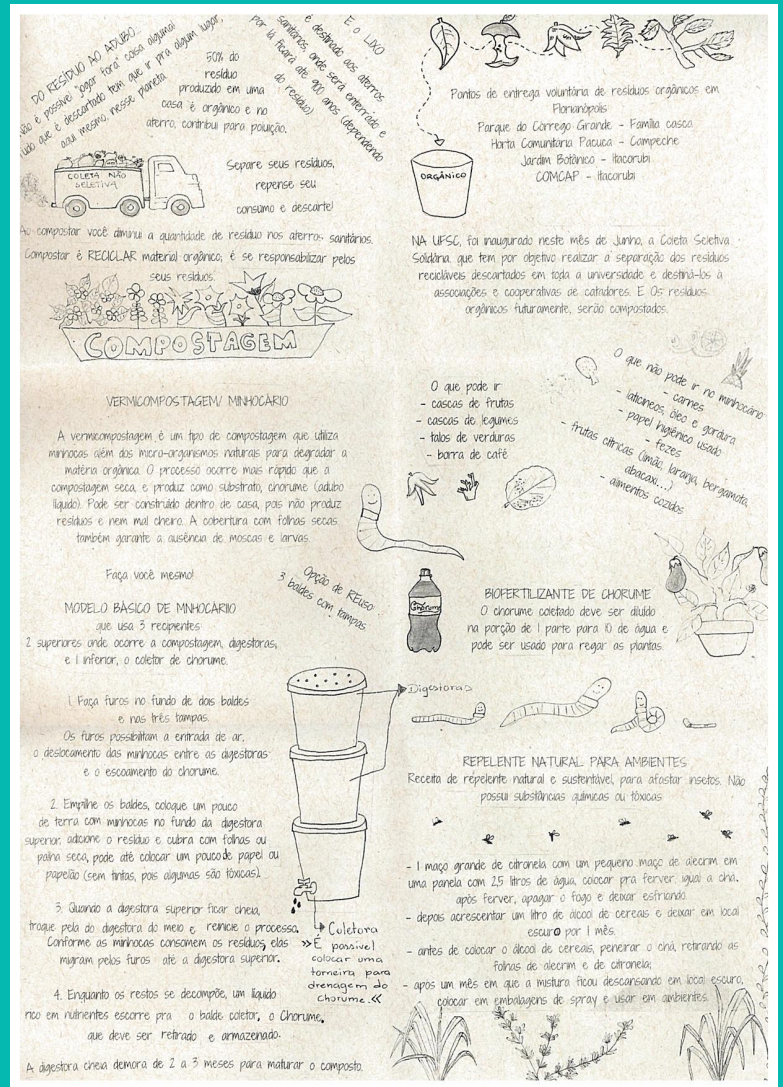 DO RESÍDUO AO ADUBO...
não é possível "jogar fora" coisa alguma!
tudo que é descartado tem que ir pra algum lugar,
aqui mesmo, nesse planeta
50% do
resíduo
produzido em uma
casa é orgânico e no
aterro, contribui para poluição.
E o LIXO
é destinado aos aterros
sanitários, onde será enterrado e
por lá ficará até 400 anos (dependendo
do resíduo)
COLETA NÃO
SELETIVA
Separe seus resíduos,
repense seu
consumo e descarte!
Ao compostar você diminui a quantidade de resíduo nos aterros sanitários.
Compostar é RECICLAR material orgânico, é se responsabilizar pelos
seus resíduos.
COMPOSTAGEM
VERMICOMPOSTAGEM/ MINHOCÁRIO
A vermicompostagem é um tipo de compostagem que utiliza
minhocas além dos micro-organismos naturais para degradar a
matéria orgânica. O processo ocorre mais rápido que a
compostagem seca, e produz como substrato, chorume (adubo
líquido). Pode ser construído dentro de casa, pois não produz
resíduos e nem mal cheiro. A cobertura com folhas secas
também garante a ausência de moscas e larvas.
Faça você mesmo!
Opção de REuso
3 baldes com tampas
MODELO BÁSICO DE MNHOCÁRIIO
que usa 3 recipientes
2 superiores onde ocorre a compostagem, digestoras,
e 1 inferior, o coletor de chorume.
1. Faça furos no fundo de dois baldes
e nas três tampas.
Os furos possibilitam a entrada de ar,
o deslocamento das minhocas entre as digestoras
e o escoamento do chorume.
2. Empilhe os baldes, coloque um pouco
de terra com minhocas no fundo da digestora
superior, adicione o resíduo e cubra com folhas ou
palha seca, pode até colocar um pouco de papel ou
papelão (sem tintas, pois algumas são tóxicas).
3. Quando a digestora superior ficar cheia,
troque pela do digestora do meio e reinicie o processo.
Conforme as minhocas consomem os resíduos, elas
migram pelos furos até a digestora superior.
4. Enquanto os restos se decompõe, um líquido
rico em nutrientes escorre pra o balde coletor, o Chorume,
que deve ser retirado e armazenado.
A digestora cheia demora de 2 a 3 meses para maturar o composto.
Digestoras
Coletora
» É possível
colocar uma
torneira para
drenagem do
chorume. «
ORGÂNICO
Pontos de entrega voluntária de resíduos orgânicos em
Florianópolis
Parque do Córrego Grande - Família casca
Horta Comunitária Pacuca - Campeche
Jardim Botânico - Itacorubi
COMCAP - Itacorubi
NA UFSC, foi inaugurado neste mês de Junho, a Coleta Seletiva
Solidária, que tem por objetivo realizar a separação dos resíduos
recicláveis descartados em toda a universidade e destiná-los à
associações e cooperativas de catadores. E Os resíduos
orgânicos futuramente, serão compostados.
O que pode ir
- cascas de frutas
- cascas de legumes
- talos de verduras
- borra de café
O que não pode ir no minhocário
- carnes
- laticíneos, óleo e gordura
- papel higiênico usado
- fezes
- frutas cítricas (limão, laranja, bergamota,
abacaxi...)
- alimentos cozidos
Chorume
BIOFERTILIZANTE DE CHORUME
O chorume coletado deve ser diluído
na porção de 1 parte para 10 de água e
pode ser usado para regar as plantas.
REPELENTE NATURAL PARA AMBIENTES
Receita de repelente natural e sustentável, para afastar insetos. Não
possui substâncias químicas ou tóxicas
- 1 maço grande de citronela com um pequeno maço de alecrim em
uma panela com 2,5 litros de água, colocar pra ferver, igual a chá..
após ferver, apagar o fogo e deixar esfriando.
- depois acrescentar um litro de álcool de cereais e deixar em local
escuro por 1 mês.
- antes de colocar o álcool de cereais, peneirar o chá, retirando as
folhas de alecrim e de citronela;
- apos um mês em que a mistura ficou descansando em local escuro,
colocar em embalagens de spray e usar em ambientes.